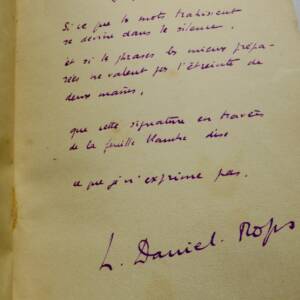 Si ce que les mots trahissent
se devine dans le silence,
et si les phrases les mieux prépa-
rées ne valent pas l'étreinte de
deux mains,
que cette signature en travers
de la feuille blanche dise
ce que je n'exprime pas.
L. Daniel-Rops